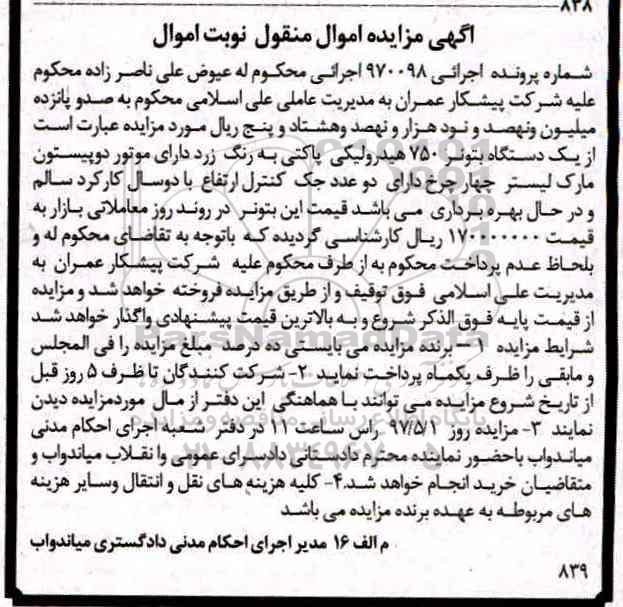 ۸۳۸
آگهی مزایده اموال منقول نوبت اموال
شماره پرونده اجرائی ۹۷۰۰۹۸ اجرائی محکوم له عیوض علی ناصر زاده محکوم
علیه شرکت پیشکار عمران به مدیریت عاملی علی اسلامی محکوم به صدو پانزده
میلیون ونهصد و نود هزار و نهصد وهشتاد و پنج ریال مورد مزایده عبارت است
از یک دستگاه بتونر ۷۵۰ هیدرولیکی پاکتی به رنگ زرد دارای موتور دوپیستون
مارک لیستر چهارچرخ دارای دو عدد جک کنترل ارتفاع با دوسال کارکرد سالم
و در حال بهره برداری می باشد قیمت این بتونر در روند روز معاملاتی بازار به
قیمت ۱۷۰۰۰۰۰۰۰ ریال کارشناسی گردیده که باتوجه به تقاضای محکوم له و
بلحاظ عدم پرداخت محکوم به از طرف محکوم علیه شرکت پیشکار عمران به
مدیریت علی اسلامی فوق توقیف و از طریق مزایده فروخته خواهد شد و مزایده
از قیمت پایه فوق الذکر شروع و به بالاترین قیمت پیشنهادی واگذار خواهد شد
شرایط مزایده ۱- برنده مزایده می بایستی ده درصد مبلغ مزایده را فی المجلس
و مابقی را ظرف یکماه پرداخت نمایند ۲- شرکت کنندگان تا ظرف ۵ روز قبل
از تاریخ شروع مزایده می توانند با هماهنگی این دفتر از مال موردمزایده دیدن
نمایند ۳- مزایده روز ۹۷/۵/۱ راس ساعت ۱۱ در دفتر شعبه اجرای احکام مدنی
میاندواب باحضور نماینده محترم دادستانی دادسرای عمومی وا نقلاب میاندواب و
متقاضیان خرید انجام خواهد شد.۴- کلیه هزینه های نقل و انتقال وسایر هزینه
های مربوطه به عهده برنده مزایده می باشد
م الف ۱۶ مدیر اجرای احکام مدنی دادگستری میاندواب
۸۳۹
ParsNamadData
پایگاه اطلاع رسانی مناقصه و مزایده
۰۲۱-۸۸۳۴۹۶۷۰-۵